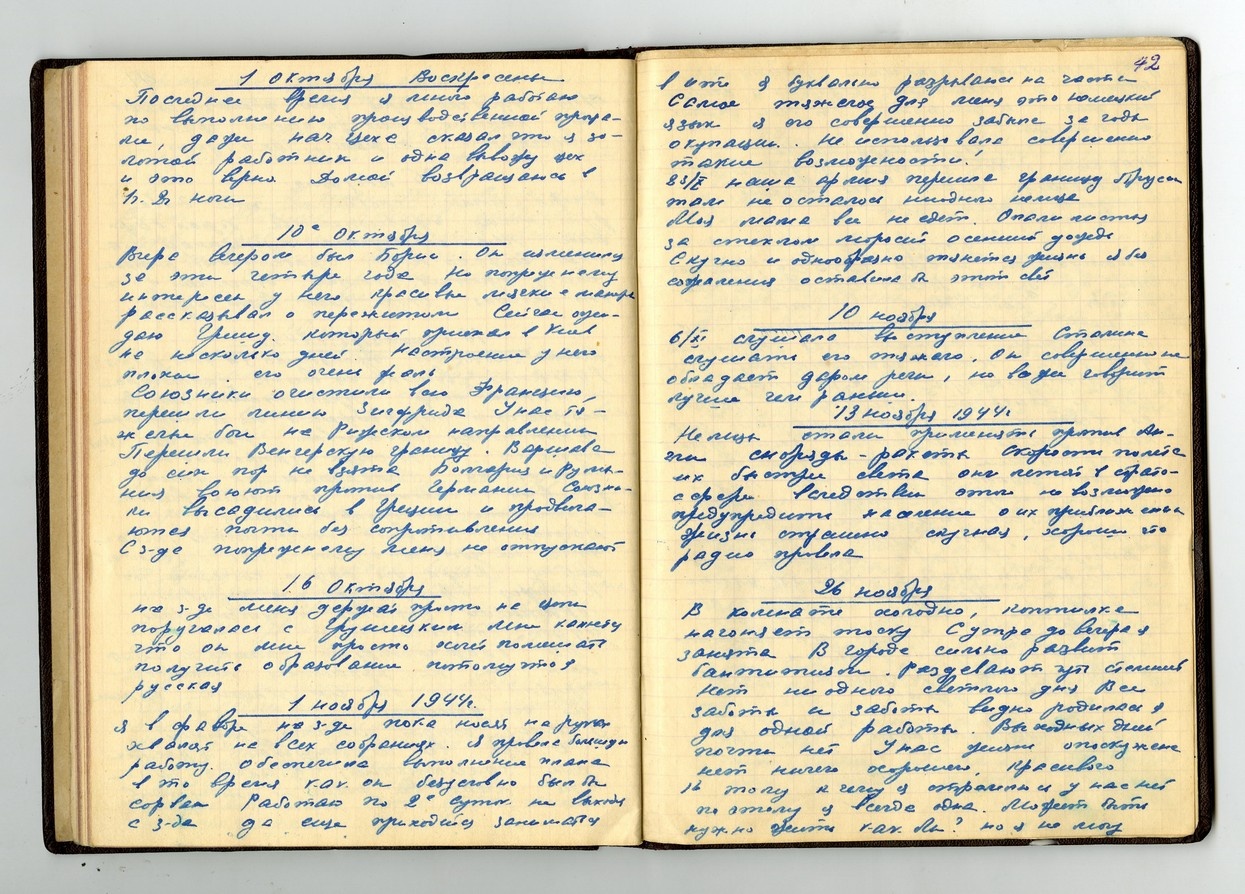 1 октября Воскресенье
Последнее время я много работаю
по выполнению производственной програ-
ме, даже нач цеха сказал что я зо-
лотой работник и одна вывожу цех
и это верно Домой возвращаюсь в
1ч. 2ч ночи
10е октября
Вчера вечером был Борис. Он изменился
за эти четыре года но попрежнему
интересен у него красивые мягкие манеры
рассказывал о пережитом Сейчас ожи-
даю Гришу. который приехал в Киев
на несколько дней. Настроение у него
плохое. его очень жаль
Союзники очистили всю Францию,
перешли линию Зигфрида У нас тя-
желые бои на Рижском направлении
Перешли Венгерскую границу. Варшава
до сих пор не взята Болгария и Румы-
ния воюют против Германии Союзни-
ки высадились в Греции и продвига-
ются почти без сопротивления
С з-да попрежнему меня не отпускают
16 октября
на з-де меня держат просто на цепи
поругалась с мне кажется
что он мне просто хочет помешать
получить образование потому что я
русская
1 ноября 1944г.
Я в фаворе на з-де пока носят на руках
хвалят на всех собраниях. Я провела большую
работу. Обеспечила выполнение плана
в то время как он безусловно был бы
сорван Работаю по 2е суток не выходя
с з-да да еще приходится заниматься
42
в ито я буквально разрываюсь на части
Самое тяжелое для меня это немецкий
язык я его совершенно забыла за годы
окупации. Не использовала совершенно
такие возможности!
23/X наша армия перешла границу
там не осталось ниодного немца
Моя мама все не едет. Опали листья
за стеклом моросит осенний дождь
Скучно и однообразно тянется жизнь я без
сожаления оставила б этот свет
10 ноября
6/XI слушала выступление Сталина
слушать его тяжело. Он совершенно не
обладает даром речи, но все же говорит
лучше чем раньше.
13 ноября 1944г
Немцы стали применять против Ан-
глии снаряды - ракеты Скорость полета
их быстрее света они летят в страто-
сфере вследствии этого невозможно
предупредить население о их приближении
Жизнь страшно скучная, хорошо что
радио провела
26 ноября
В комнате холодно, коптилка
нагоняет тоску С утра до вечера я
занята В городе сильно развит
бантитизм. Раздевают
Нет ни одного светлого дня Все
заботы и заботы видно родилась я
для одной работы. Выходных дней
почти нет У нас жизнь
нет ничего хорошего, красивого
к тому к чему я стремилась у нас нет
по этому я всегда одна. Может быть
нужно жить как Вы? но я не могу